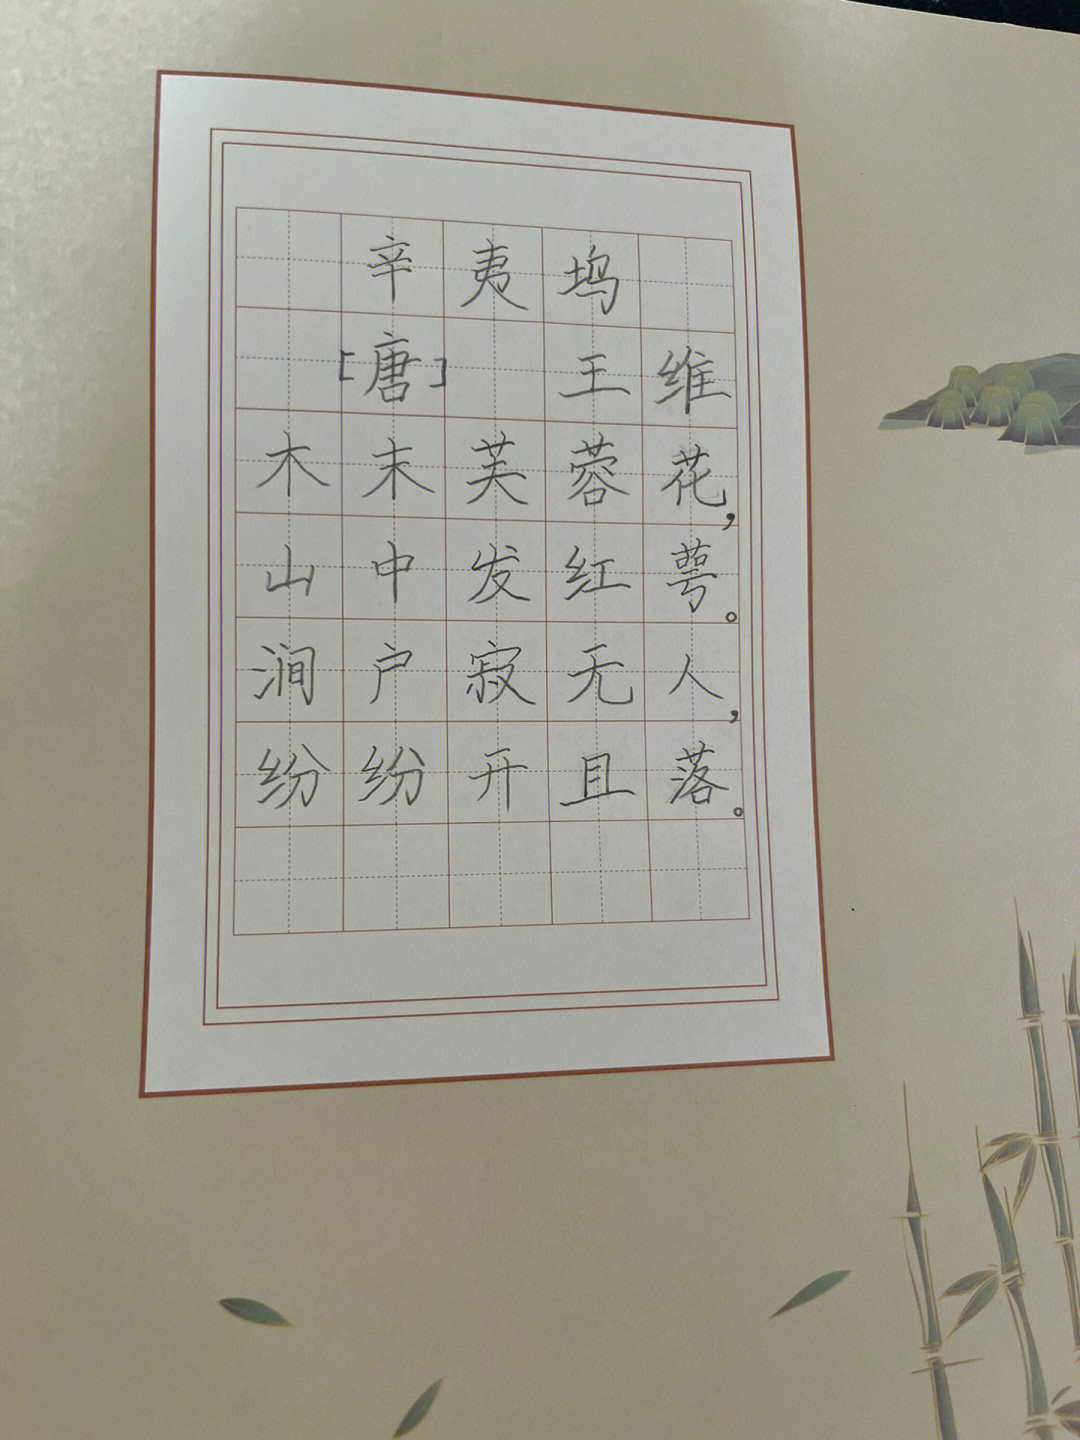 辛夷坞
[唐] 王维
木末芙蓉花，
山中发红萼。
涧户寂无人，
纷纷开且落。